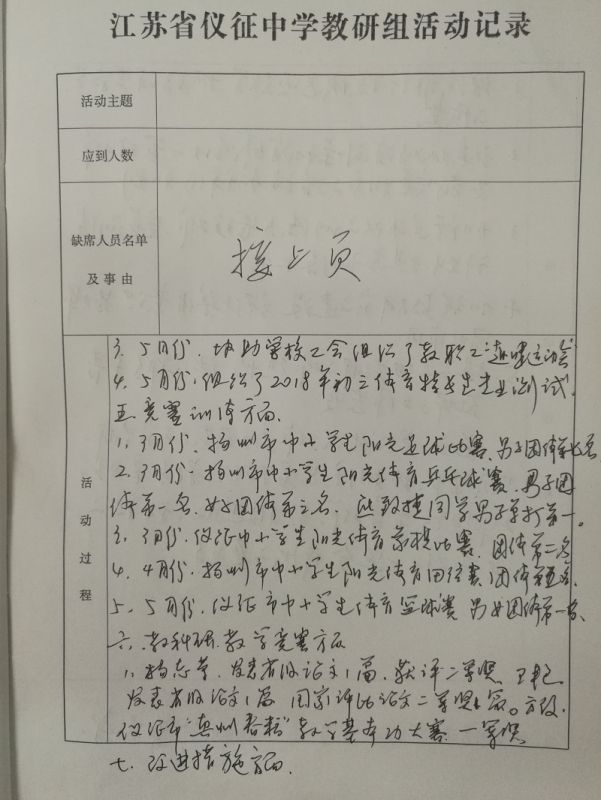 江苏省仪征中学教研组活动记录
活动主题
应到人数
缺席人员名单
及事由
接上页
活动过程
3. 5月份. 协助学校工会组织了教职工趣味运动会
4. 5月份. 组织了2018年初三体育特长生专业测试.
五. 竞赛训练方面.
1. 3月份. 扬州市中小学生阳光足球比赛. 男子团体第七名
2. 3月份. 扬州市中小学生阳光体育乒乓球赛. 男子团
体第一名. 女子团体第三名. 同学男子单打第一。
3. 3月份. 仪征中小学生阳光体育象棋比赛. 团体第二名
4. 4月份. 扬州市中小学生阳光体育田径赛 团体第五名.
5. 5月份. 仪征市中小学生体育篮球赛 男女团体第一名.
六. 教科研. 教学竞赛方面
1. 发表省级论文1篇. 获评二等奖.
发表省级论文1篇 国家评比论文二等奖1篇。
仪征市 教学基本功大赛 一等奖
七. 改进措施方面.